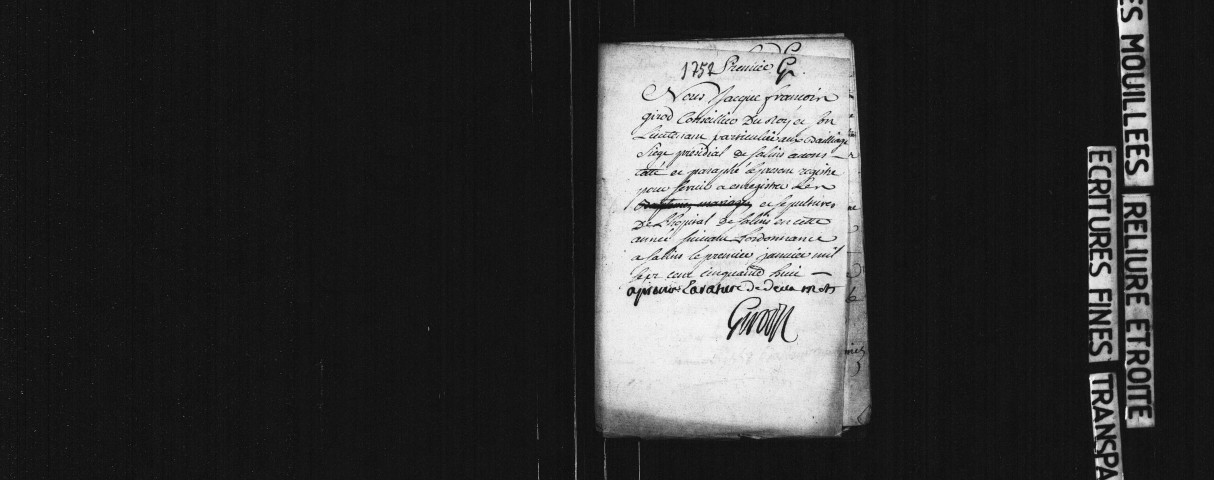 1752 Premier G
Nous Jacque francois
girod Conseiller Du Roy et son
Lieutenant particulier aux Bailliage
Siege presidial de Salins avons
cotté et paraphé le present registre
pour servir a enregistrer Les
mariages et sepultures
De L'hopital de Salins en cette
année suivant L'ordonnance
a Salins le premier janvier mil
sept cent cinquante huit
aprouvé La rature de deux mots
Girod
ES MOUILLEES RELIURE ETROITE
ECRITURES FINES TRANSPA